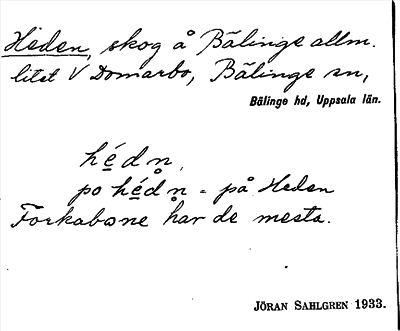 Heden, skog å Bälinge allm.
litet V Domarbo, Bälinge sn,
Bälinge hd, Uppsala län.
hédn,
po hédn = på Heden
Forkabone har de mesta.
JÖRAN SAHLGREN 1933.